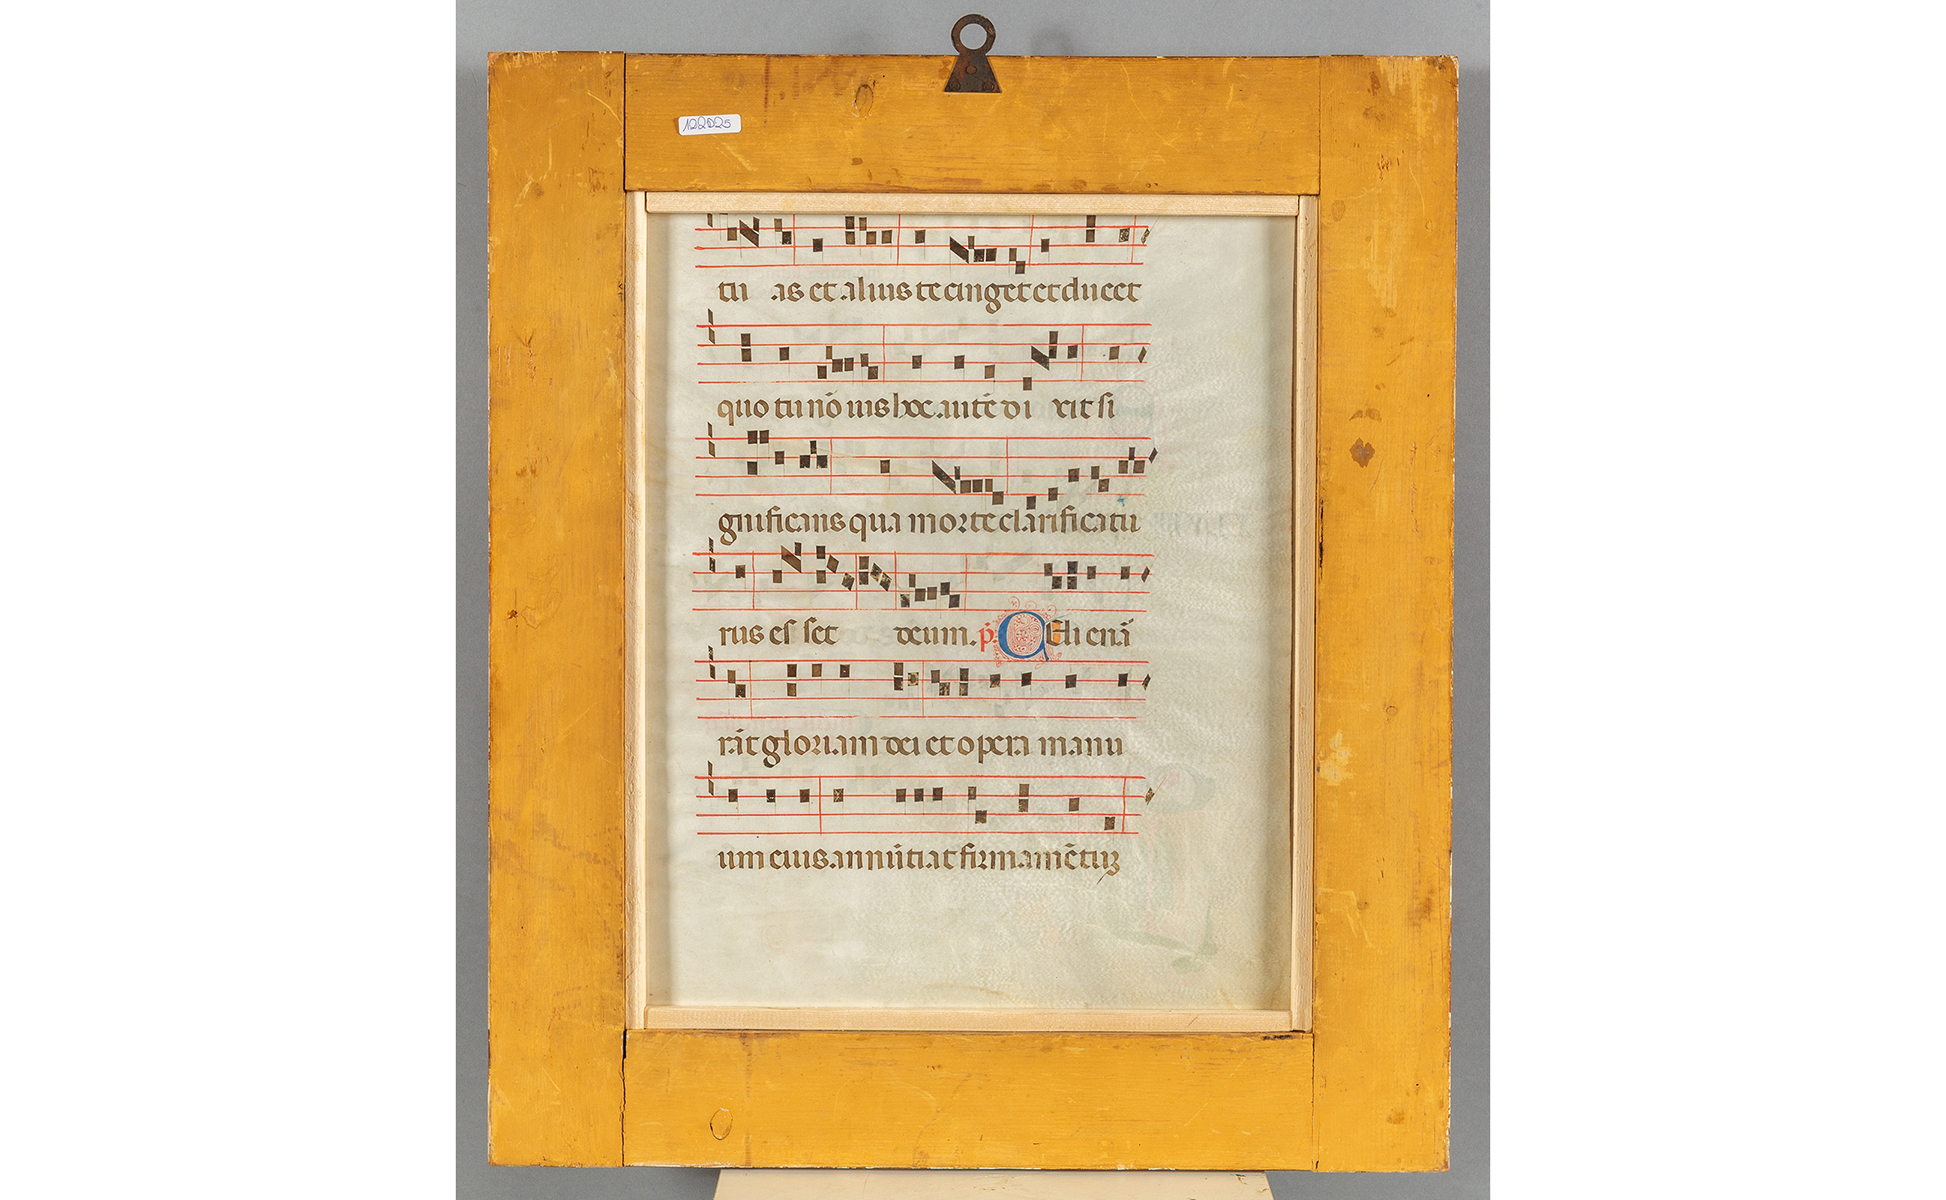 122025
tu as et alius te cinget et ducet
quo tu nō uis hoc autē di xit si
gnificans qua morte clarificatu
rus es set deum. p̄. Celi enā
rāt gloriam dei et opera manu
um eius annūtiat firmamētuꝫ